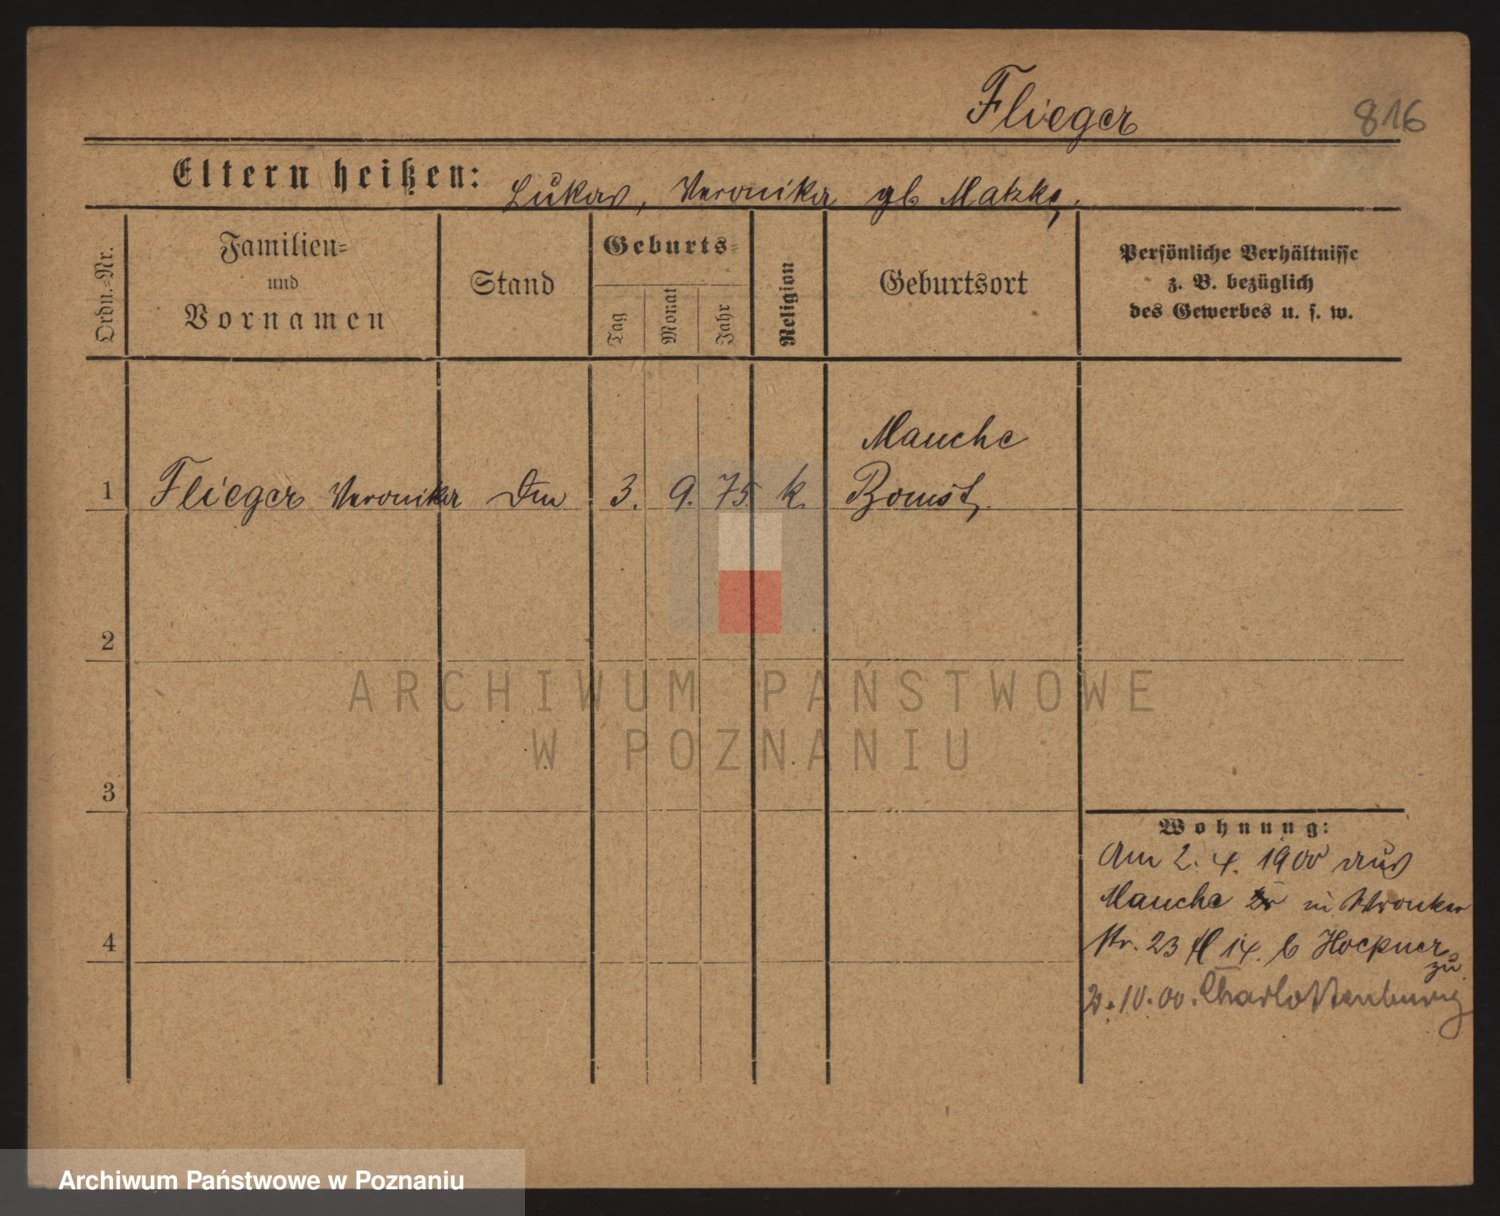 Flieger
816
Eltern heißen: Lukas, Veronika gb Matzke,
Ordn.=Nr.
Familien=
und
Vornamen
Stand
Geburts=
Tag
Monat
Jahr
Religion
Geburtsort
Persönliche Verhältnisse
z. B. bezüglich
des Gewerbes u. s. w.
Mauche
1 Flieger Veronika Dm 3. 9. 75 k. Bomst
2
3
4
Wohnung:
Am 2. 4. 1900 aus
Mauche in Wronker
str. 23 14. b Hoepner
zu
2.10.00. Charlottenburg
ARCHIWUM PAŃSTWOWE
W POZNANIU
Archiwum Państwowe w Poznaniu